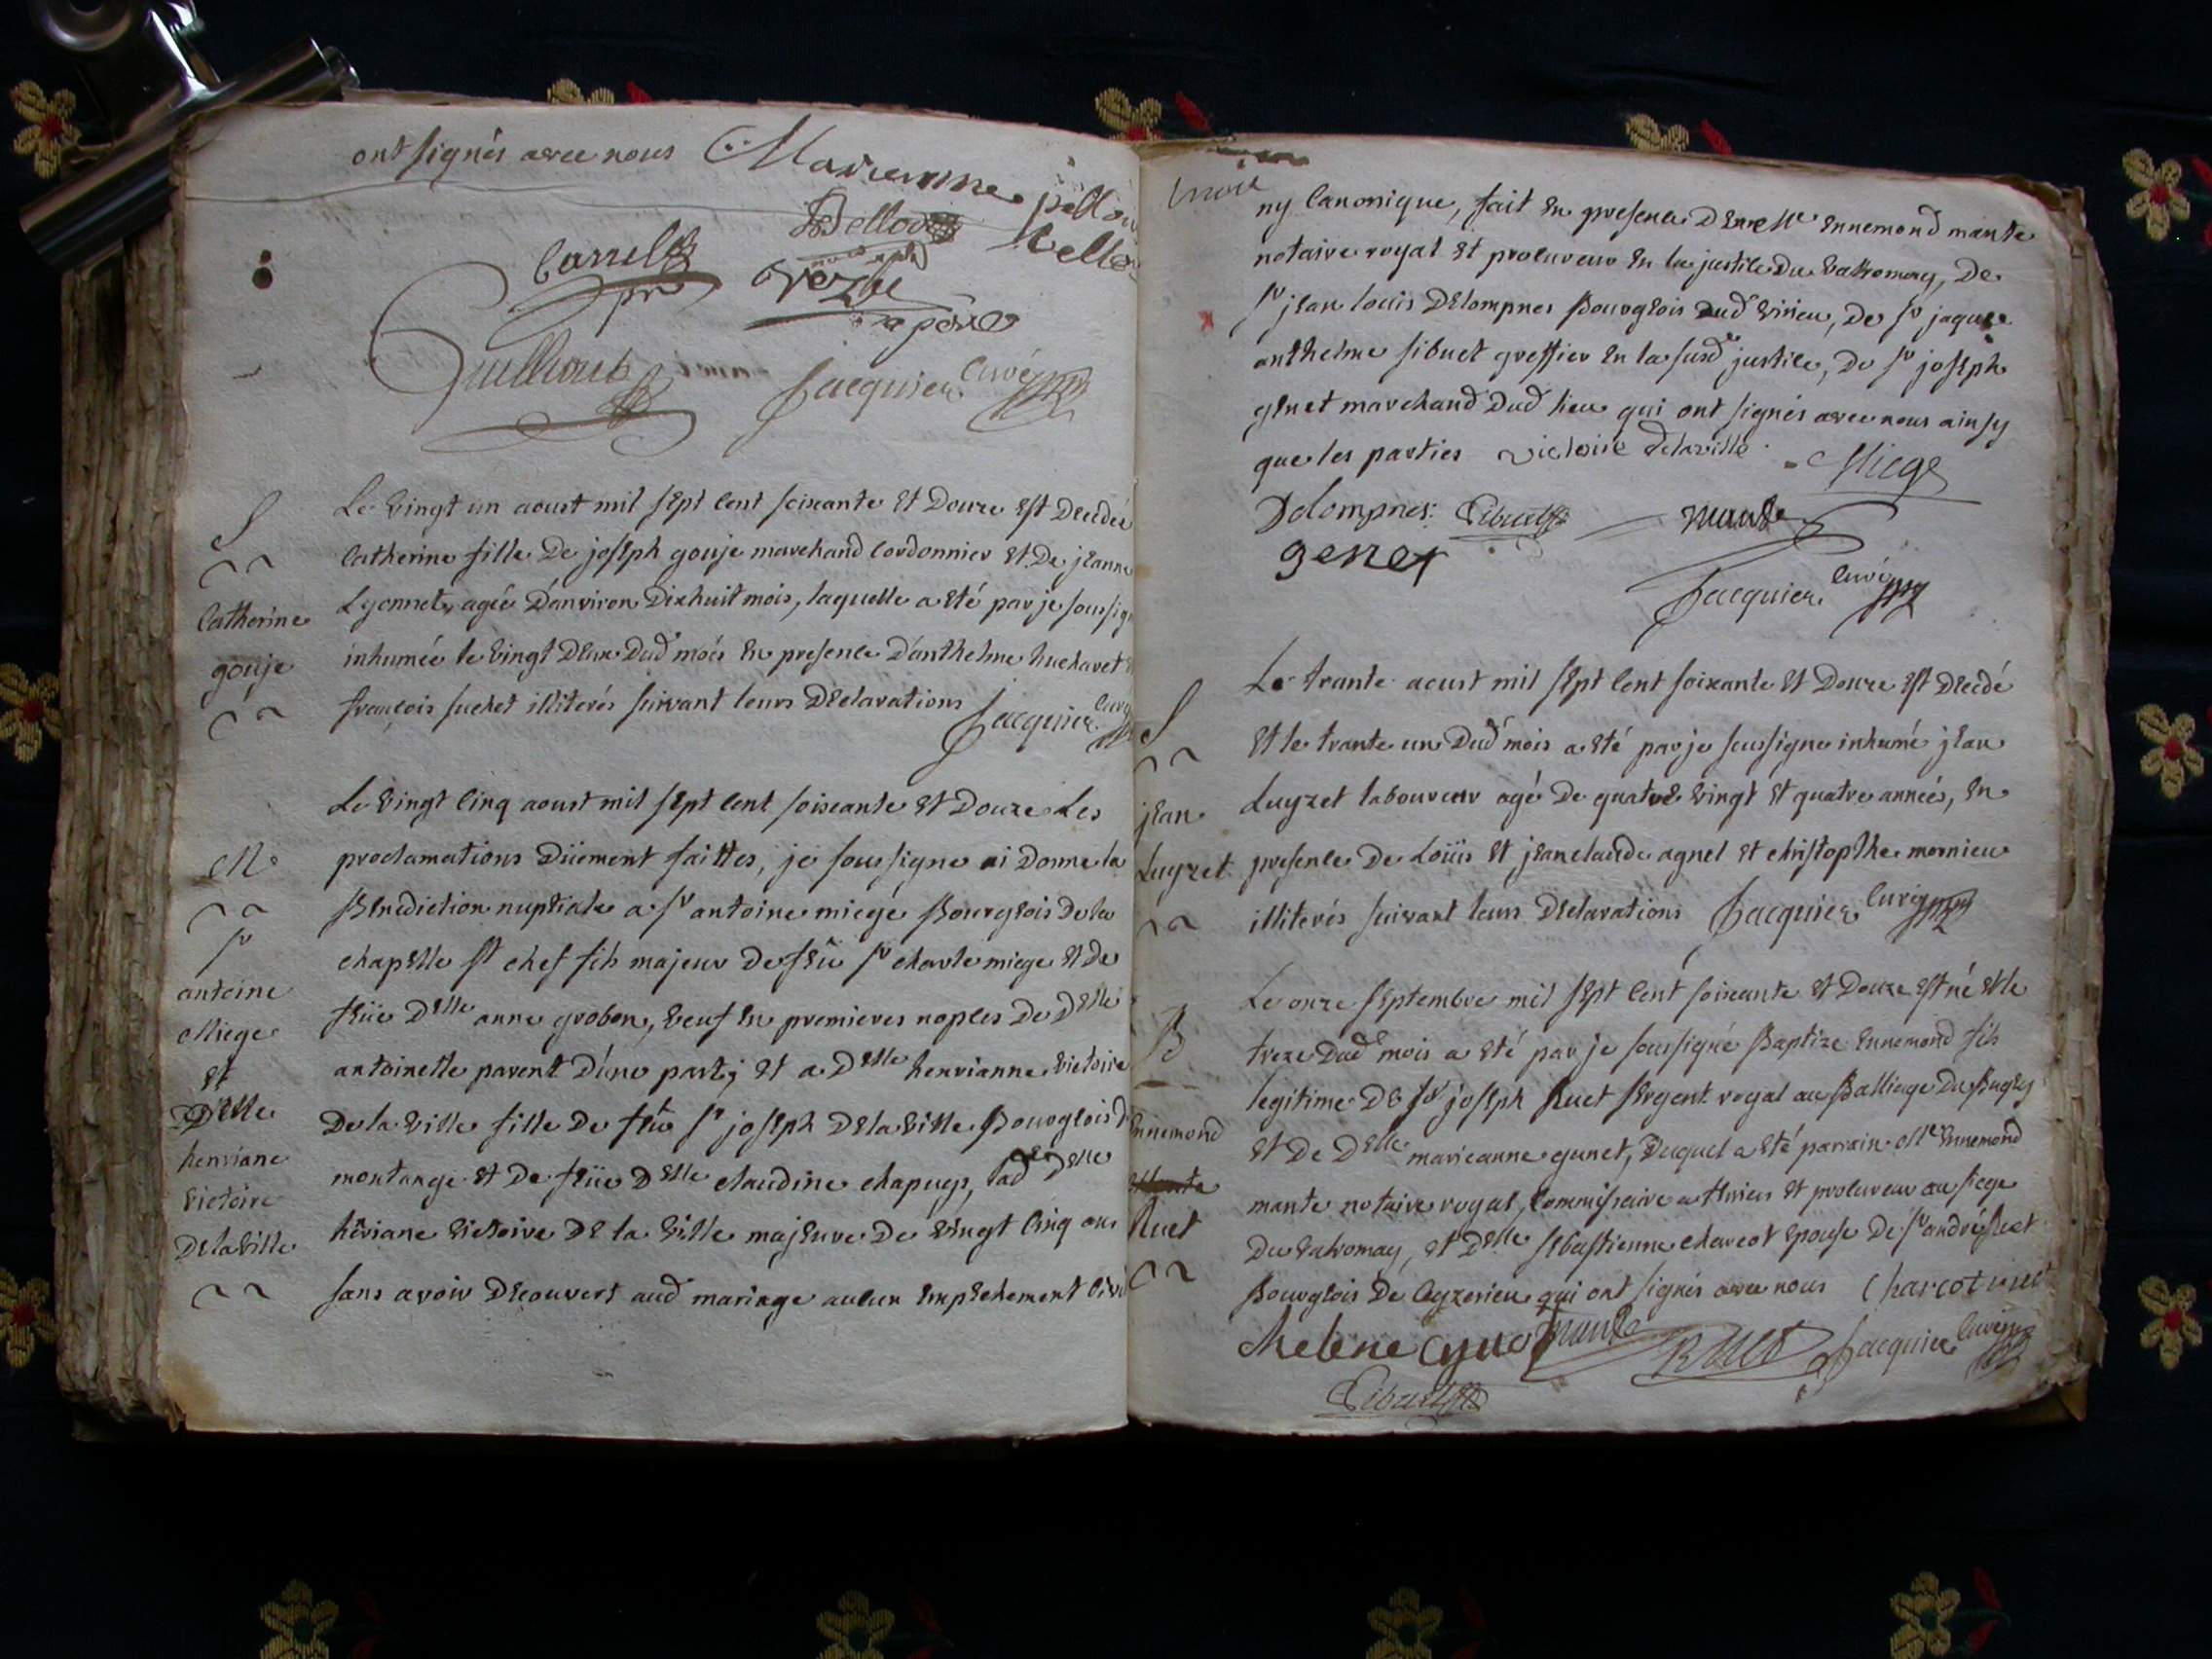 ont signés avec nous Marienne pellou
Bellod bello
Carrel
Guilliout
Jacquier curé
S
Catherine
gouje
Le vingt un aoust mil sept cent soixante et Douze est Decedée
Catherine fille De joseph gouje marchand Cordonnier et De jeanne
Lyonnet, agée D'anviron Dixhuit mois, laquelle a eté par je soussig
inhumée le vingt Deux Dud mois en presence D'anthelme huchavet
françois suchet illiterés suivant leurs Declarations Jacquier curé
M
sr
antoine
Miege
et
Delle
henriane
victoire
Delaville
Le vingt cinq aoust mil sept cent soixante et Douze Les
proclamations Düement faittes, je soussigne ai Donne la
Benediction nuptiale a sr antoine miege Bourgeois De la
chapelle st chef fils majeur De feû sr charle miege et De
feüe Delle anne grobon, veuf en premieres nopces De Delle
antoinette parent D'une part; et a Delle henrianne victoire
De la ville fille De feu sr joseph Delaville Bourgeois D
montange et De feüe Delle claudine chapuys, lad Delle
hēriane victoire De la ville majeure De vingt cinq ans
sans avoir Decouvert aud mariage aucun empechement civi
ny canonique, fait en presence De Me ennemond mante
notaire royal et procureur en la justice Du valromay, De
sr jean louis Delompnes Bourgeois Dud virieu, De sr jaque
anthelme sibuet greffier en la susd justice, De sr joseph
genet marchand Dud lieu qui ont signés avec nous ainsy
que les parties victoire delaville Miege
Delompnes Sibuet mante
genet
Jacquier curé
S
jean
Luyzet
Le trante aoust mil sept cent soixante et Douze est Decedé
et le trante un Dud mois a eté par je soussigne inhumé jean
Luyzet laboureur agé De quatre vingt et quatre années, en
presence De Loüis et jeanclaude agnel et christopthe mornieu
illiterés suivant leurs Declarations Jacquier curé
B
Ennemond
Ruet
Le onze septembre mil sept cent soixante et Douze est né et le
treze Dud mois a eté par je soussigné Baptize Ennemond fils
legitime De sr joseph Ruet sergent royal au Balliage Du Bugey
et De Delle marieanne gunet, Duquel a eté parrain Me Ennemond
mante notaire royal, commissaire a therriers et procureur au siege
Du valromay, et Delle sebastienne charcot epouse De sr andré Ruet
Bourgeois De Ceyzerieu qui ont signés avec nous Charcot ruet
helene mante Ruet Jacquier curé
Sibuet